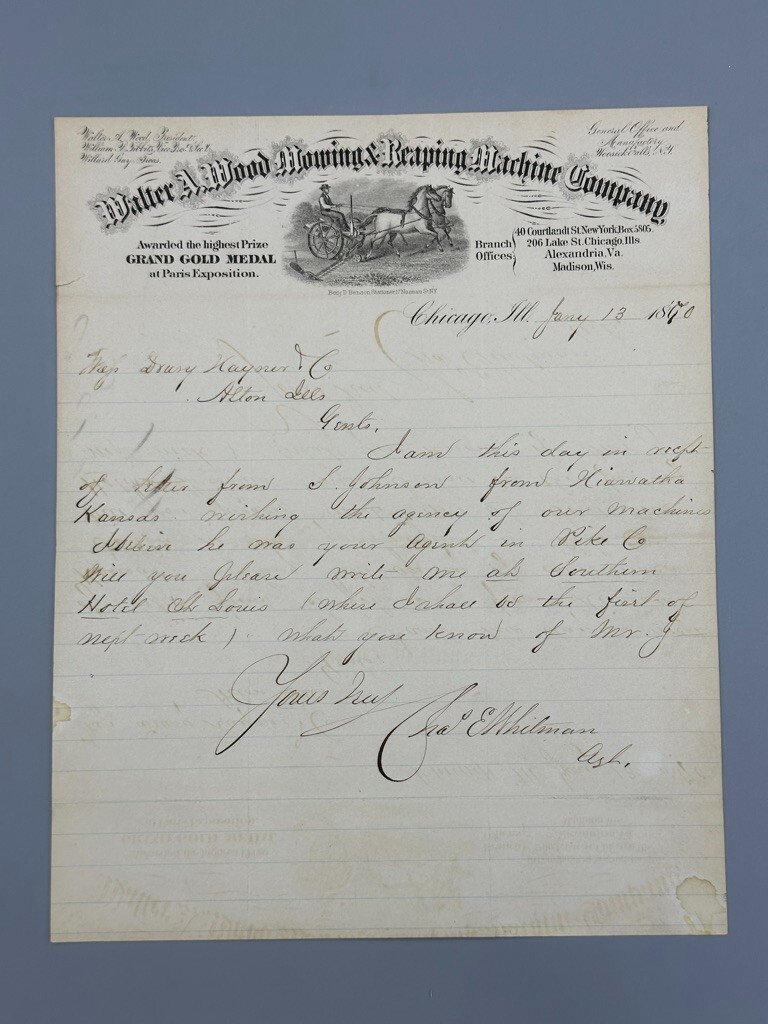 Walter A. Wood, President.
William B. Tibbits, Vice Pres. & Sec'y.
Willard Gay, Treas.
General Office and
Manufactory
Hoosick Falls, N.Y.
Walter A. Wood Mowing & Reaping Machine Company,
Awarded the highest Prize
GRAND GOLD MEDAL
at Paris Exposition.
Branch Offices
40 Courtlandt St. New York, Box 5805.
206 Lake St. Chicago, Ills.
Alexandria, Va.
Madison, Wis.
Chicago, Ill. Jany 13 1870
Drury Haynor & Co
Alton Ills
Gents,
I am this day in recpt
of letter from S. Johnson from Hiawatha
Kansas. wishing the agency of our machines
he was your Agent in Pike Co
Will you please write me at Southern
Hotel St Louis (where I shall be the first of
next week) what you know of Mr. J
Yours Truly
Chas E Whitman
Agt.